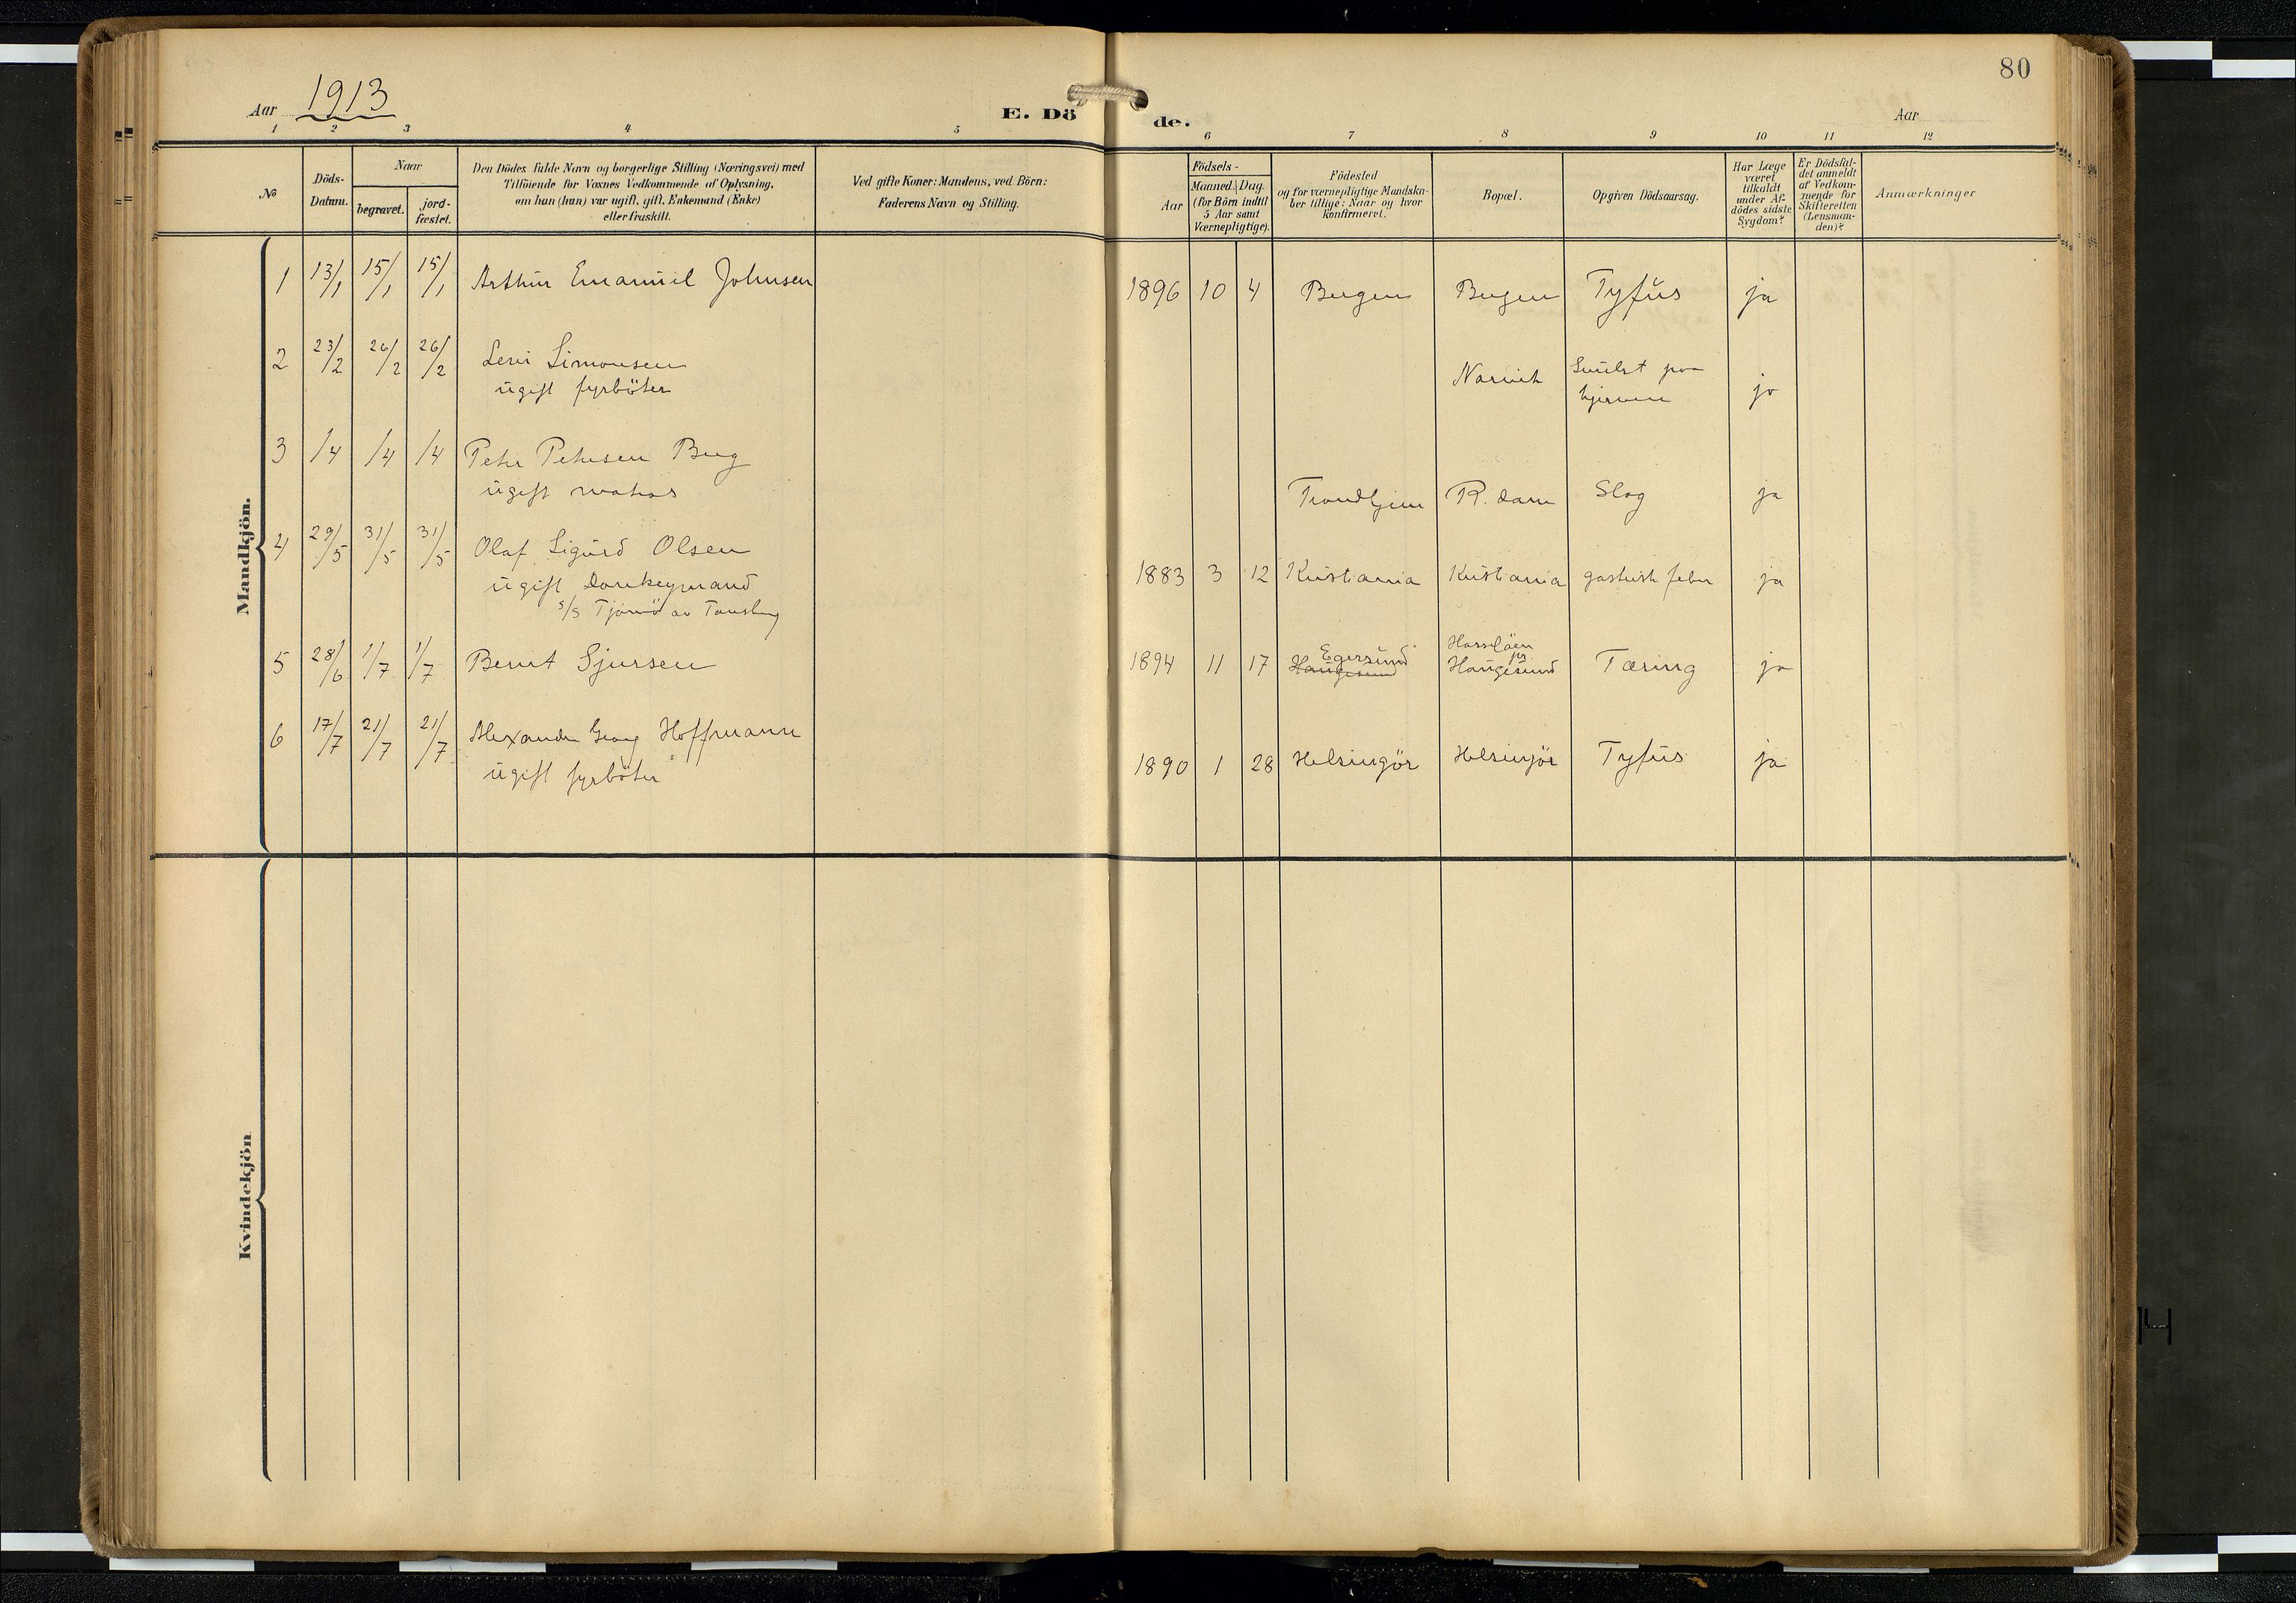 80
Aar 1913
E. Dö de.
Aar
1 2 3 4 5 6 7 8 9 10 11 12
No
Döds-
Datum.
Naar
begravet.
jord-
fæstet.
Den Dödes fulde Navn og borgerlige Stilling (Næringsvei) med
Tilföiende for Voxnes Vedkommende af Oplysning,
om han (hun) var ugift, gift, Enkemand (Enke)
eller fraskilt.
Ved gifte Koner: Mandens, ved Börn:
Faderens Navn og Stilling.
Födsels-
Aar
Maaned. Dag.
(for Börn indtil
5 Aar samt
Værnepligtige).
Födested
og for værnepligtige Mandska-
ber tillige: Naar og hvor
konfirmeret.
Bopæl.
Opgiven Dödsaarsag.
Har Læge
været
tilkaldt
under Af-
dödes sidste
Sygdom?
Er Dödsfal-
det anmeldt
af Vedkom-
mende for
Skifteretten
(Lensman-
den)?
Anmærkninger
Mandkjön.
1 13/1 15/1 15/1 Arthur Emanuel Johnsen 1896 10 4 Bergen Bergen Tyfus ja
2 23/2 26/2 26/2 Levi Simonsen
ugift fyrböter
Narvik
paa
hjernen
ja
3 /4 /4 /4 Peter Petersen Berg
ugift matros
Trondhjem R. dam Slag ja
4 29/5 31/5 31/5 Olaf Sigurd Olsen
ugift Donkeymand
s/s Tjömö av Tønsberg
1883 3 12 Kristiania Kristiania gastrisk feber ja
5 28/6 1/7 1/7 Bernt Sjursen 1894 11 17
Egersund
Haugesund
pr
Haugesund
Tæring ja
6 17/7 21/7 21/7 Alexander Georg Hoffmann
ugift fyrböter
1890 1 28 Helsingör Helsingör Tyfus ja
Kvindekjön